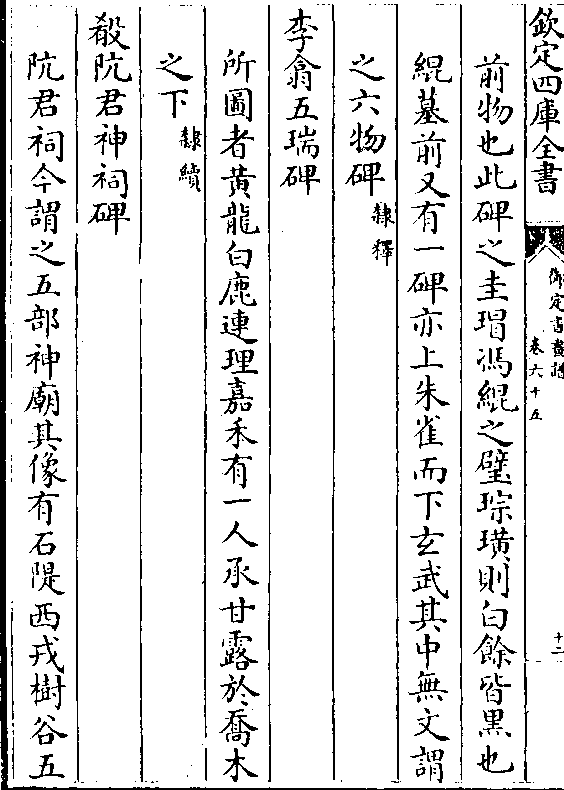 欽定四庫全書
御定書畫譜
卷六十五
十二
前物也此碑之圭瑁馮緄之璧琮璜則白餘皆黑也
緄墓前又有一碑亦上朱雀而下玄武其中無文謂
之六物碑隸釋
李翕五瑞碑
所圖者黃龍白鹿連理嘉禾有一人承甘露於喬木
之下隸續
殽阬君神祠碑
阬君祠今謂之五部神廟其像有石隄西戎樹谷五